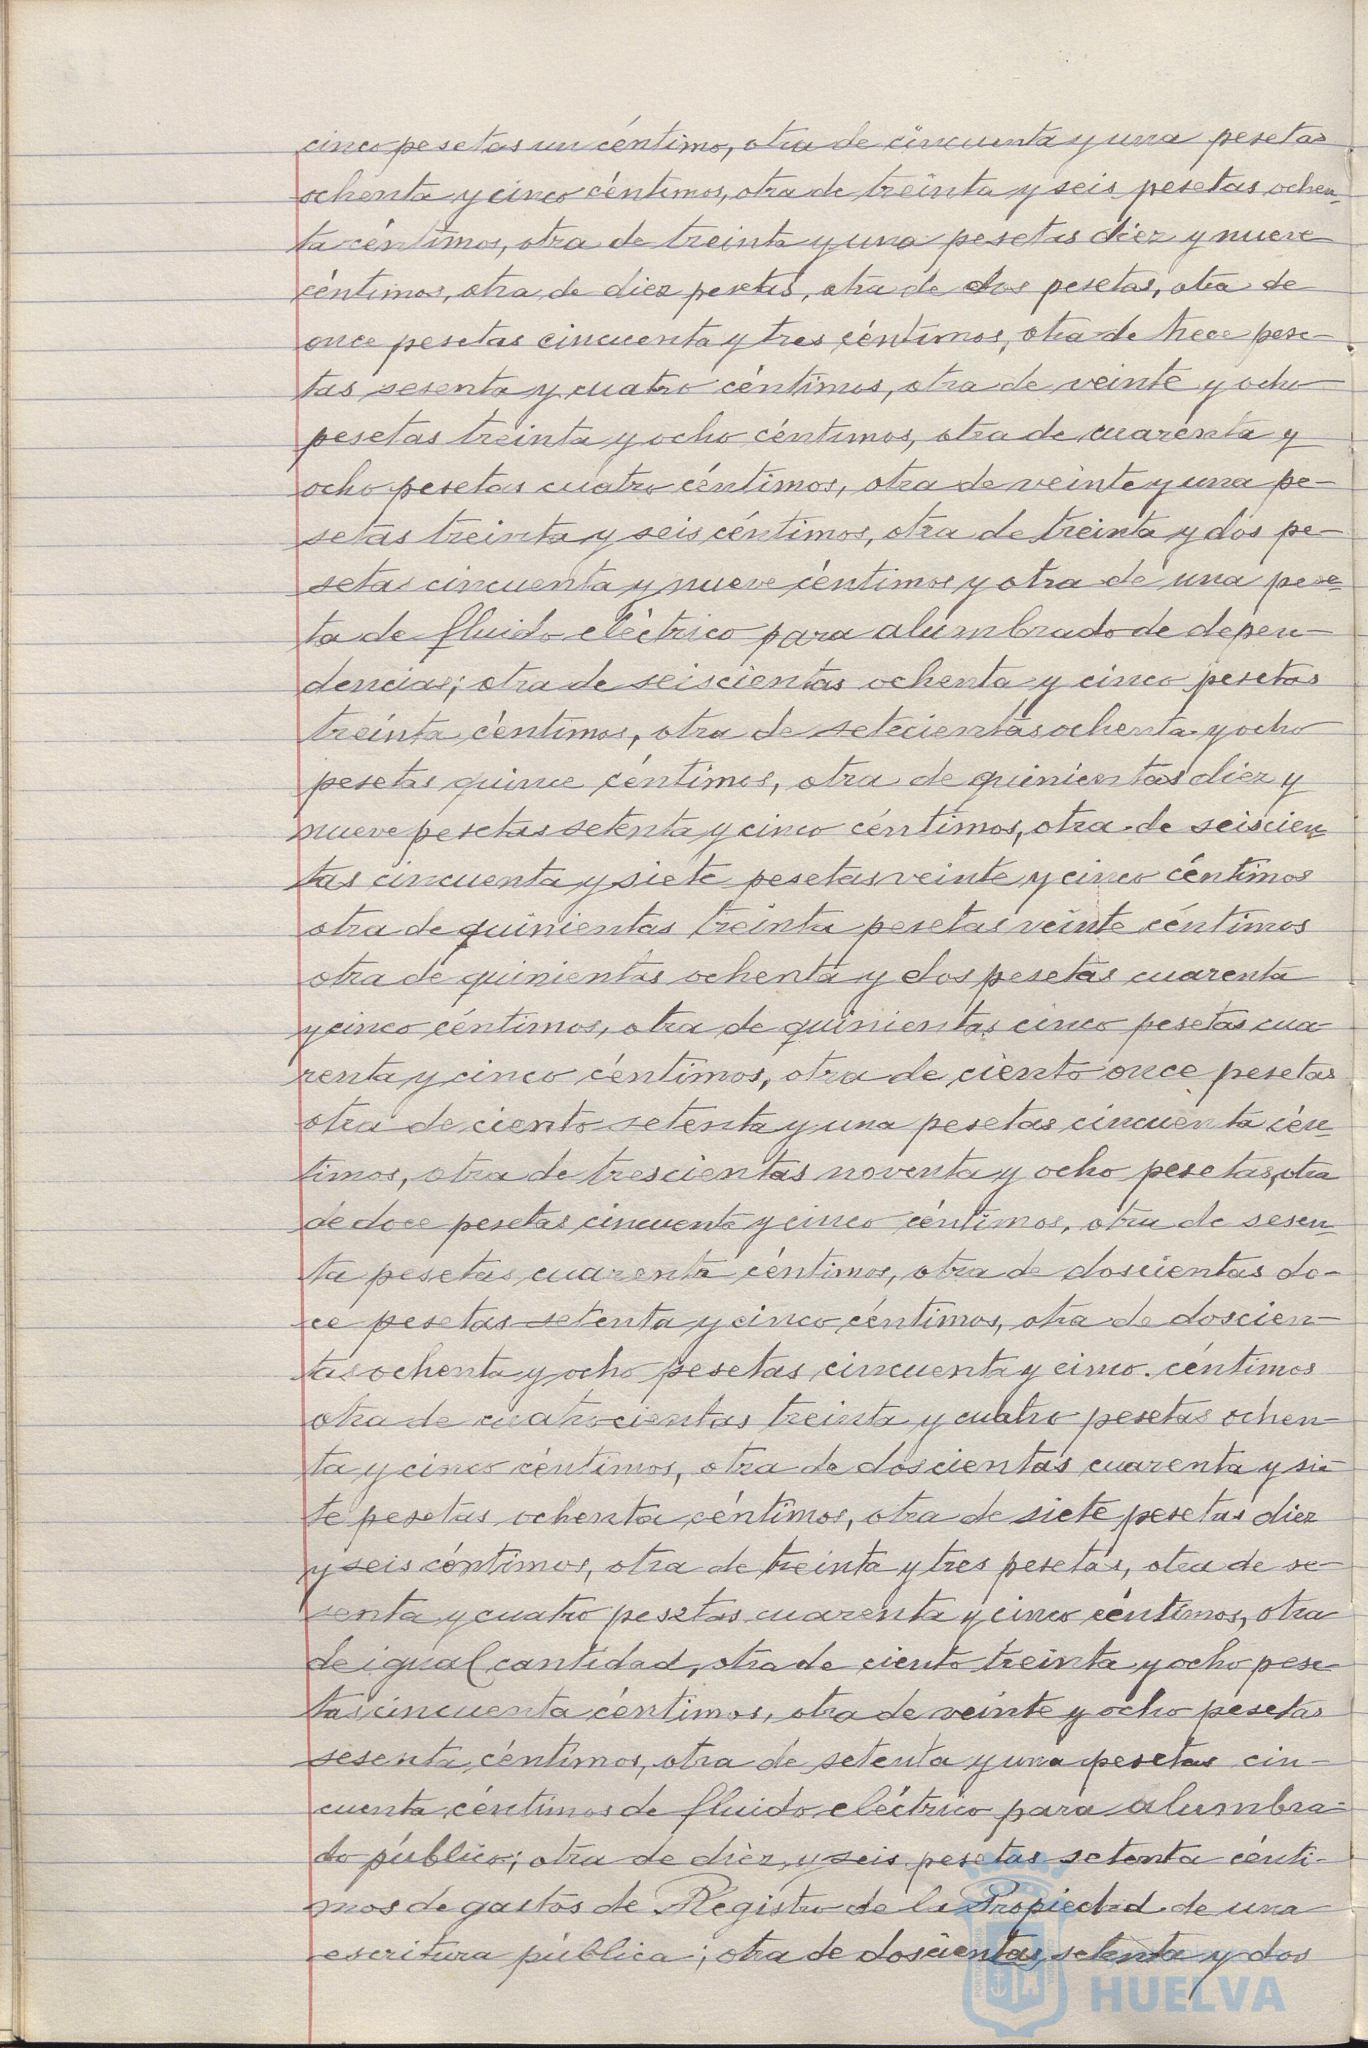 cinco pesetas un céntimo, otra de cincuenta y una pesetas
ochenta y cinco céntimos, otra de treinta y seis pesetas ochen-
ta céntimos, otra de treinta y una pesetas diez y nueve
céntimos, otra de diez pesetas, otra de dos pesetas, otra de
once pesetas cincuenta y tres céntimos, otra de trece pese-
tas sesenta y cuatro céntimos, otra de veinte y ocho
pesetas treinta y ocho céntimos, otra de cuarenta y
ocho pesetas cuatro céntimos, otra de veinte y una pe-
setas treinta y seis céntimos, otra de treinta y dos pe-
setas cincuenta y nueve céntimos y otra de una pese-
ta de fluido eléctrico para alumbrado de depen-
dencias; otra de seiscientas ochenta y cinco pesetas
treinta céntimos, otra de setecientas ochenta y ocho
pesetas quince céntimos, otra de quinientas diez y
nueve pesetas setenta y cinco céntimos, otra de seiscien-
tas cincuenta y siete pesetas veinte y cinco céntimos
otra de quinientas treinta pesetas veinte céntimos
otra de quinientas ochenta y dos pesetas cuarenta
y cinco céntimos, otra de quinientas cinco pesetas cua-
renta y cinco céntimos, otra de ciento once pesetas
otra de ciento setenta y una pesetas cincuenta cén-
timos, otra de trescientas noventa y ocho pesetas, otra
de doce pesetas cincuenta y cinco céntimos, otra de sesen-
ta pesetas cuarenta céntimos, otra de doscientas do-
ce pesetas setenta y cinco céntimos, otra de doscien-
tas ochenta y ocho pesetas cincuenta y cinco céntimos
otra de cuatrocientas treinta y cuatro pesetas ochen-
ta y cinco céntimos, otra de doscientas cuarenta y sie-
te pesetas ochenta céntimos, otra de siete pesetas diez
y seis céntimos, otra de treinta y tres pesetas, otra de se-
senta y cuatro pesetas cuarenta y cinco céntimos, otra
de igual cantidad, otra de ciento treinta y ocho pese-
tas cincuenta céntimos, otra de veinte y ocho pesetas
sesenta céntimos, otra de setenta y una pesetas cin-
cuenta céntimos de fluido eléctrico para alumbra-
do público; otra de diez y seis pesetas setenta cénti-
mos de gastos de Registro de la Propiedad de una
escritura pública; otra de doscientas setenta y dos
HUELVA